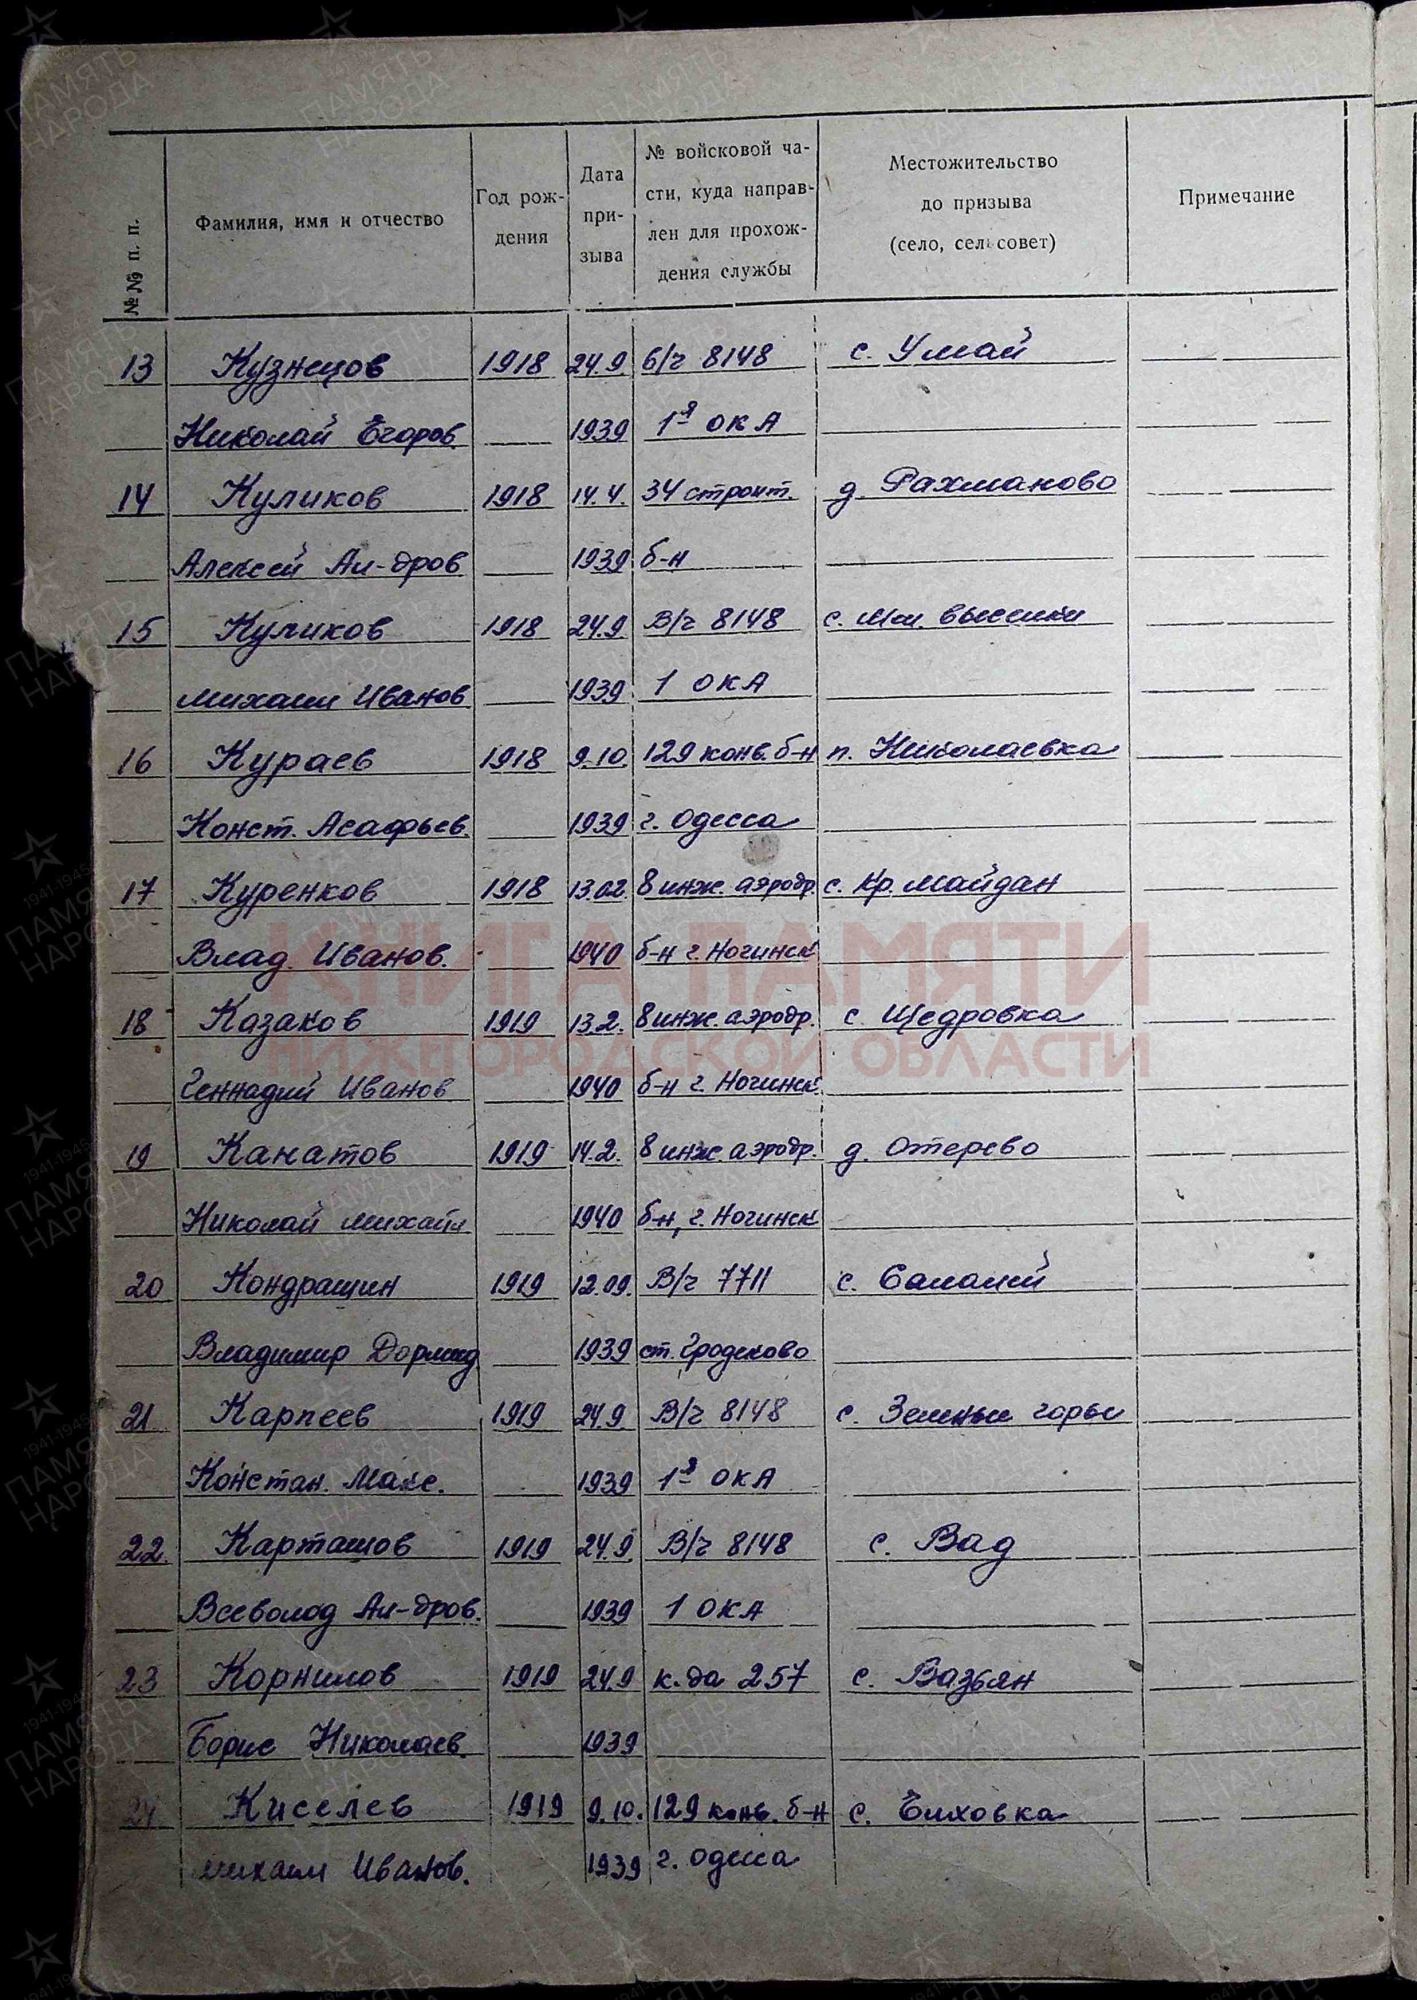 №№ п. п.
Фамилия, имя и отчество
Год рож-
дения
Дата
при-
зыва
№ войсковой ча-
сти, куда направ-
лен для прохож-
дения службы
Местожительство
до призыва
(село, сельсовет)
Примечание
13 Кузнецов 1918 24.9 в/ч 8148 с. Умай
Николай Егоров. 1939 1я ОКА
14 Куликов 1918 14.4. 34 строит. д. Рахманово
Алексей Ал-дров 1939 б-н
15 Куликов 1918 24.9 В/ч 8148 с.
Михаил Иванов 1939 1 ОКА
16 Кураев 1918 9.10. 129 конв. б-н п. Николаевка
Конст. Асафьев. 1939 г. Одесса
17 Куренков 1918 13.02. 8 инж. аэродр. с. Кр. Майдан
Влад. Иванов. 1940 б-н г. Ногинск
18 Казаков 1919 13.2. 8 инж. аэродр. с. Щедровка
Геннадий Иванов 1940 б-н г. Ногинск
19 Канатов 1919 14.2. 8 инж. аэродр. д. Отерево
Николай Михайл 1940 б-н, г. Ногинск
20 Кондрашин 1919 12.09. В/ч 7711 с. Салалей
Владимир 1939 ст. Гродеково
21 Карпеев 1919 24.9. В/ч 8148 с. Зеленые горы
Констан. Макс. 1939 1я ОКА
22. Карташов 1919 24.9. В/ч 8148 с. Вад
Всеволод Ал-дров. 1939 1 ОКА
23 Корнилов 1919 24.9 к.да 257 с. Вазьян
Борис Николаев. 1939
24 Киселев 1919 9.10. 129 конв. б-н с. Елховка
Михаил Иванов. 1939 г. Одесса
КНИГА ПАМЯТИ
НИЖЕГОРОДСКОЙ ОБЛАСТИ
1941-1945
ПАМЯТЬ
НАРОДА